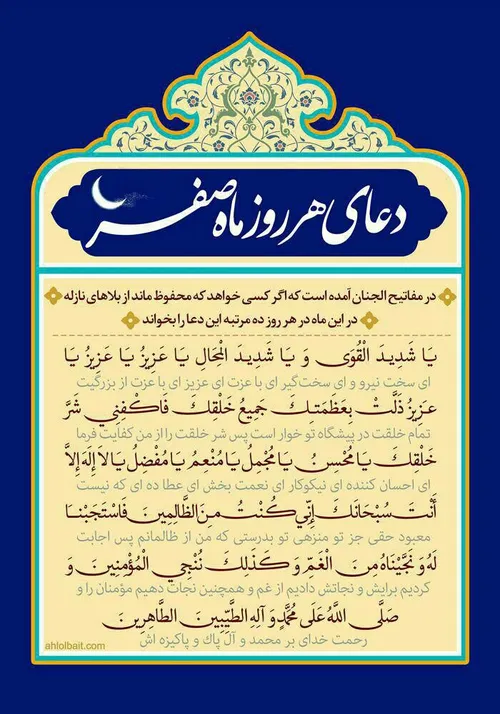 دعای هر روز ماه صفر
در مفاتیح الجنان آمده است که اگر کسی خواهد که محفوظ ماند از بلاهای نازله
در این ماه در هر روز ده مرتبه این دعا را بخواند
یَا شَدِیدَ الْقُوَی وَ یَا شَدِیدَ الْمِحَالِ یَا عَزِیزُ یَا عَزِیزُ یَا
ای سخت نیرو و ای سخت‌گیر ای با عزت ای عزیز ای با عزت از بزرگیت
عَزِیزُ ذَلَّتْ بِعَظَمَتِكَ جَمِیعُ خَلْقِكَ فَاكْفِنِی شَرَّ
تمام خلقت در پیشگاه تو خوار است پس شر خلقت را از من کفایت فرما
خَلْقِكَ یَا مُحْسِنُ یَا مُجْمِلُ یَا مُنْعِمُ یَا مُفْضِلُ یَا لاَ إِلَهَ إِلاَّ
ای احسان کننده ای نیکوکار ای نعمت بخش ای عطا ده ای که نیست
أَنْتَ سُبْحَانَكَ إِنِّی كُنْتُ مِنَ الظَّالِمِینَ فَاسْتَجَبْنَا
معبود حقی جز تو منزهی تو بدرستی که من از ظالمانم پس اجابت
لَهُ وَ نَجَّیْنَاهُ مِنَ الْغَمِّ وَ كَذَلِكَ نُنْجِی الْمُؤْمِنِینَ وَ
کردیم برایش و نجاتش دادیم از غم و همچنین نجات دهیم مؤمنان را و
صَلَّی اللَّهُ عَلَی مُحَمَّدٍ وَ آلِهِ الطَّیِّبِینَ الطَّاهِرِینَ
رحمت خدای بر محمد و آل پاك و پاکیزه اش
ahlolbait.com